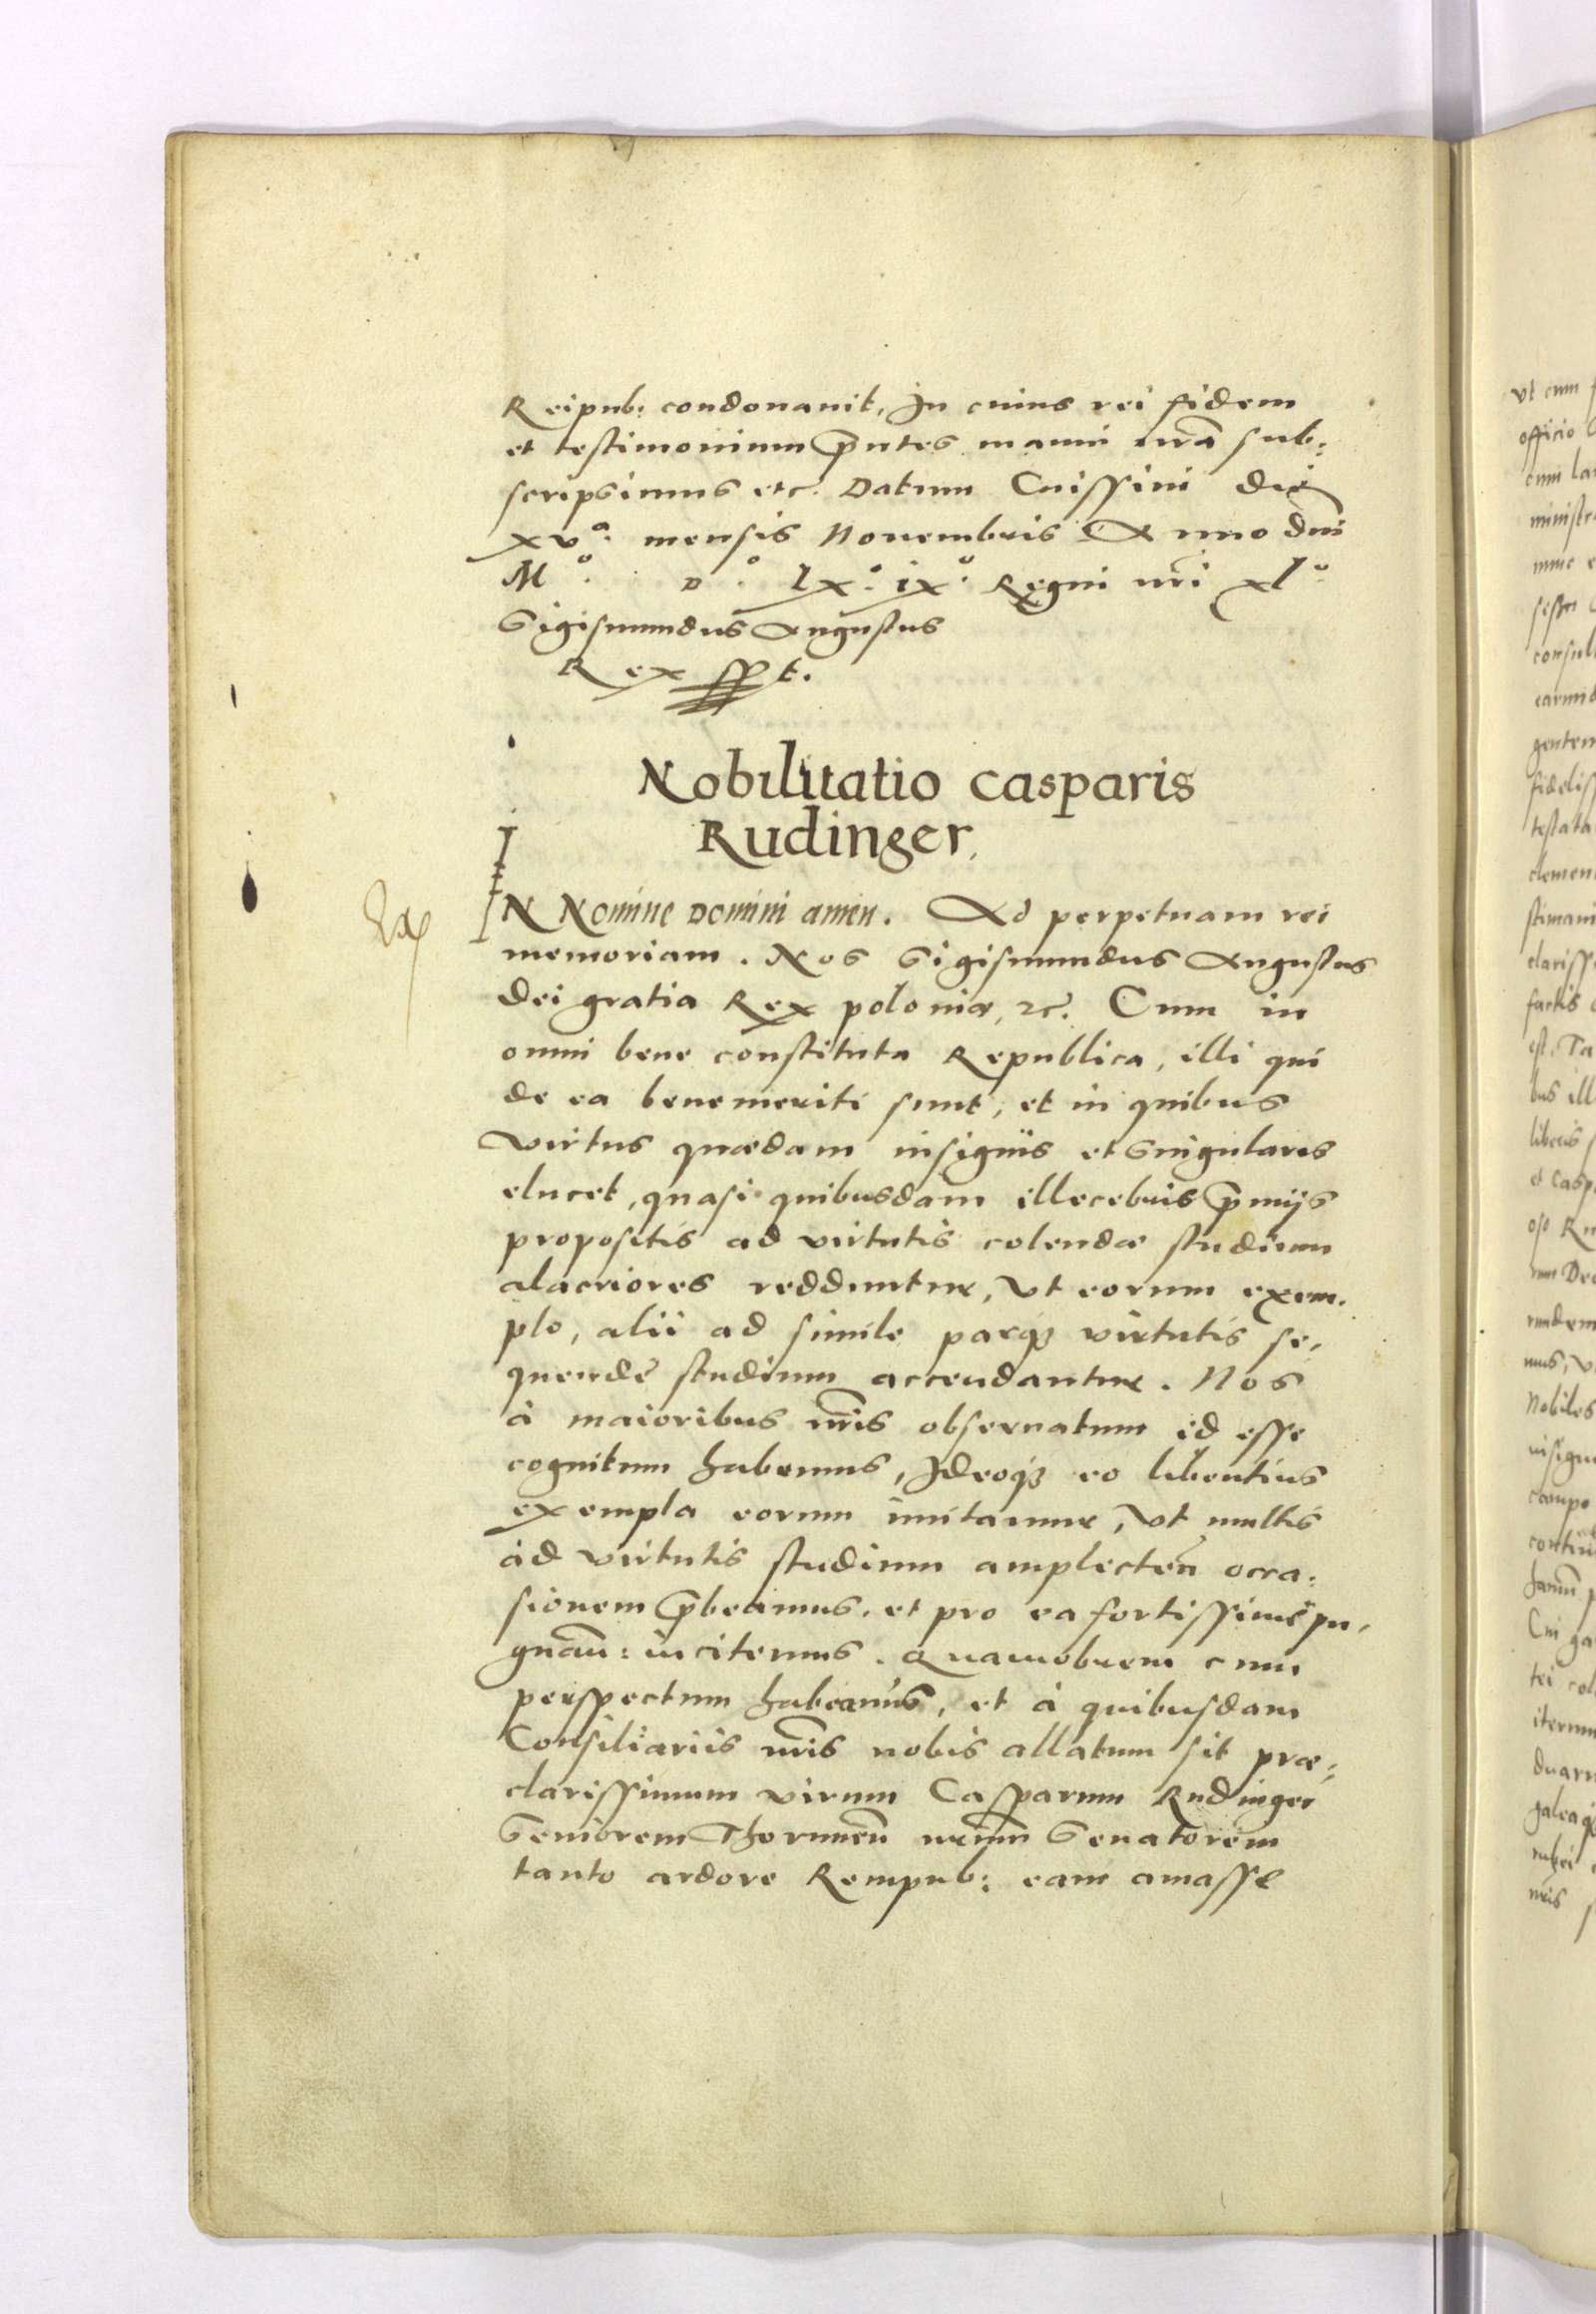 Reipub: condonauit, In cuius rei fidem
et testimonium p̄ntes manu nr̄a sub:
scripsimus etc. Datum Cnissini die
xvᵃ. mensis Nouembris Anno dnī
Mº. Dº. lxº. ixº. Regni nr̄i xlº.
Sigismundus Augustus
Rex sspt.
Nobilitatio Casparis
Rudinger,
IN Nomine Domini amen. Ad perpetuam rei
memoriam. Nos Sigismundus Augustus
Dei gratia Rex poloniæ, etc. Cum in
omni bene constituta Republica, illi qui
de ea benemeriti sunt, et in quibus
virtus quædam insignis et singularis
elucet, quasi quibusdam illecebris p̄mijs
propositis ad virtutis colendæ studium
alacriores redduntur, Vt eorum exem.
plo, alii ad simile parq3 virtutis se,
quende studium accendantur. Nos
à maioribus nr̄is obseruatum id esse
cognitum habemus, Ideoq3 eo libentius
exempla eorum imitamur, Vt multis
ad virtutis studium amplecten̄ occa:
sionem p̄beamus. et pro ea fortissime pu,
gnan̄: incitemus. Quamobrem cum
perspectum habeamus, et à quibusdam
Consiliariis nr̄is nobis allatum sit præ:
clarissimum virum Casparum Rudinger
Seniorem Thorunen̄ nr̄um Senatorem
tanto ardore Rempub: eam amasse
vt cum
officio
cum
ministr
nunc
consul
gentem
fideliss
testata
clemen
clariss
factis
est. Ta
bus ill
liberis
et Casp
Nobiles
insign
campo
Cui ga
tei
iterum
duar
galeaq3
nr̄is